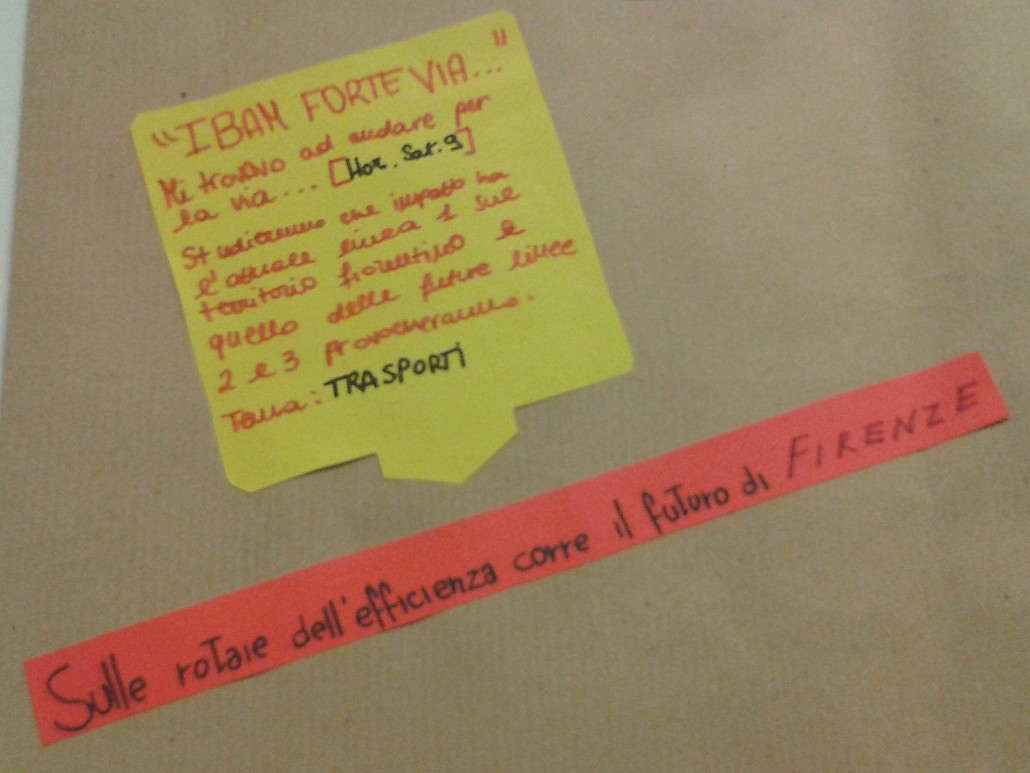 "IBAM FORTE VIA..."
Mi trovavo ad andare per
la via... [Hor. Sat. 9]
Studieremo che impatto ha
l'attuale linea 1 sul
territorio fiorentino e
quello delle future linee
2 e 3 provocheranno.
Tema: TRASPORTI
Sulle rotaie dell'efficienza corre il futuro di FIRENZE